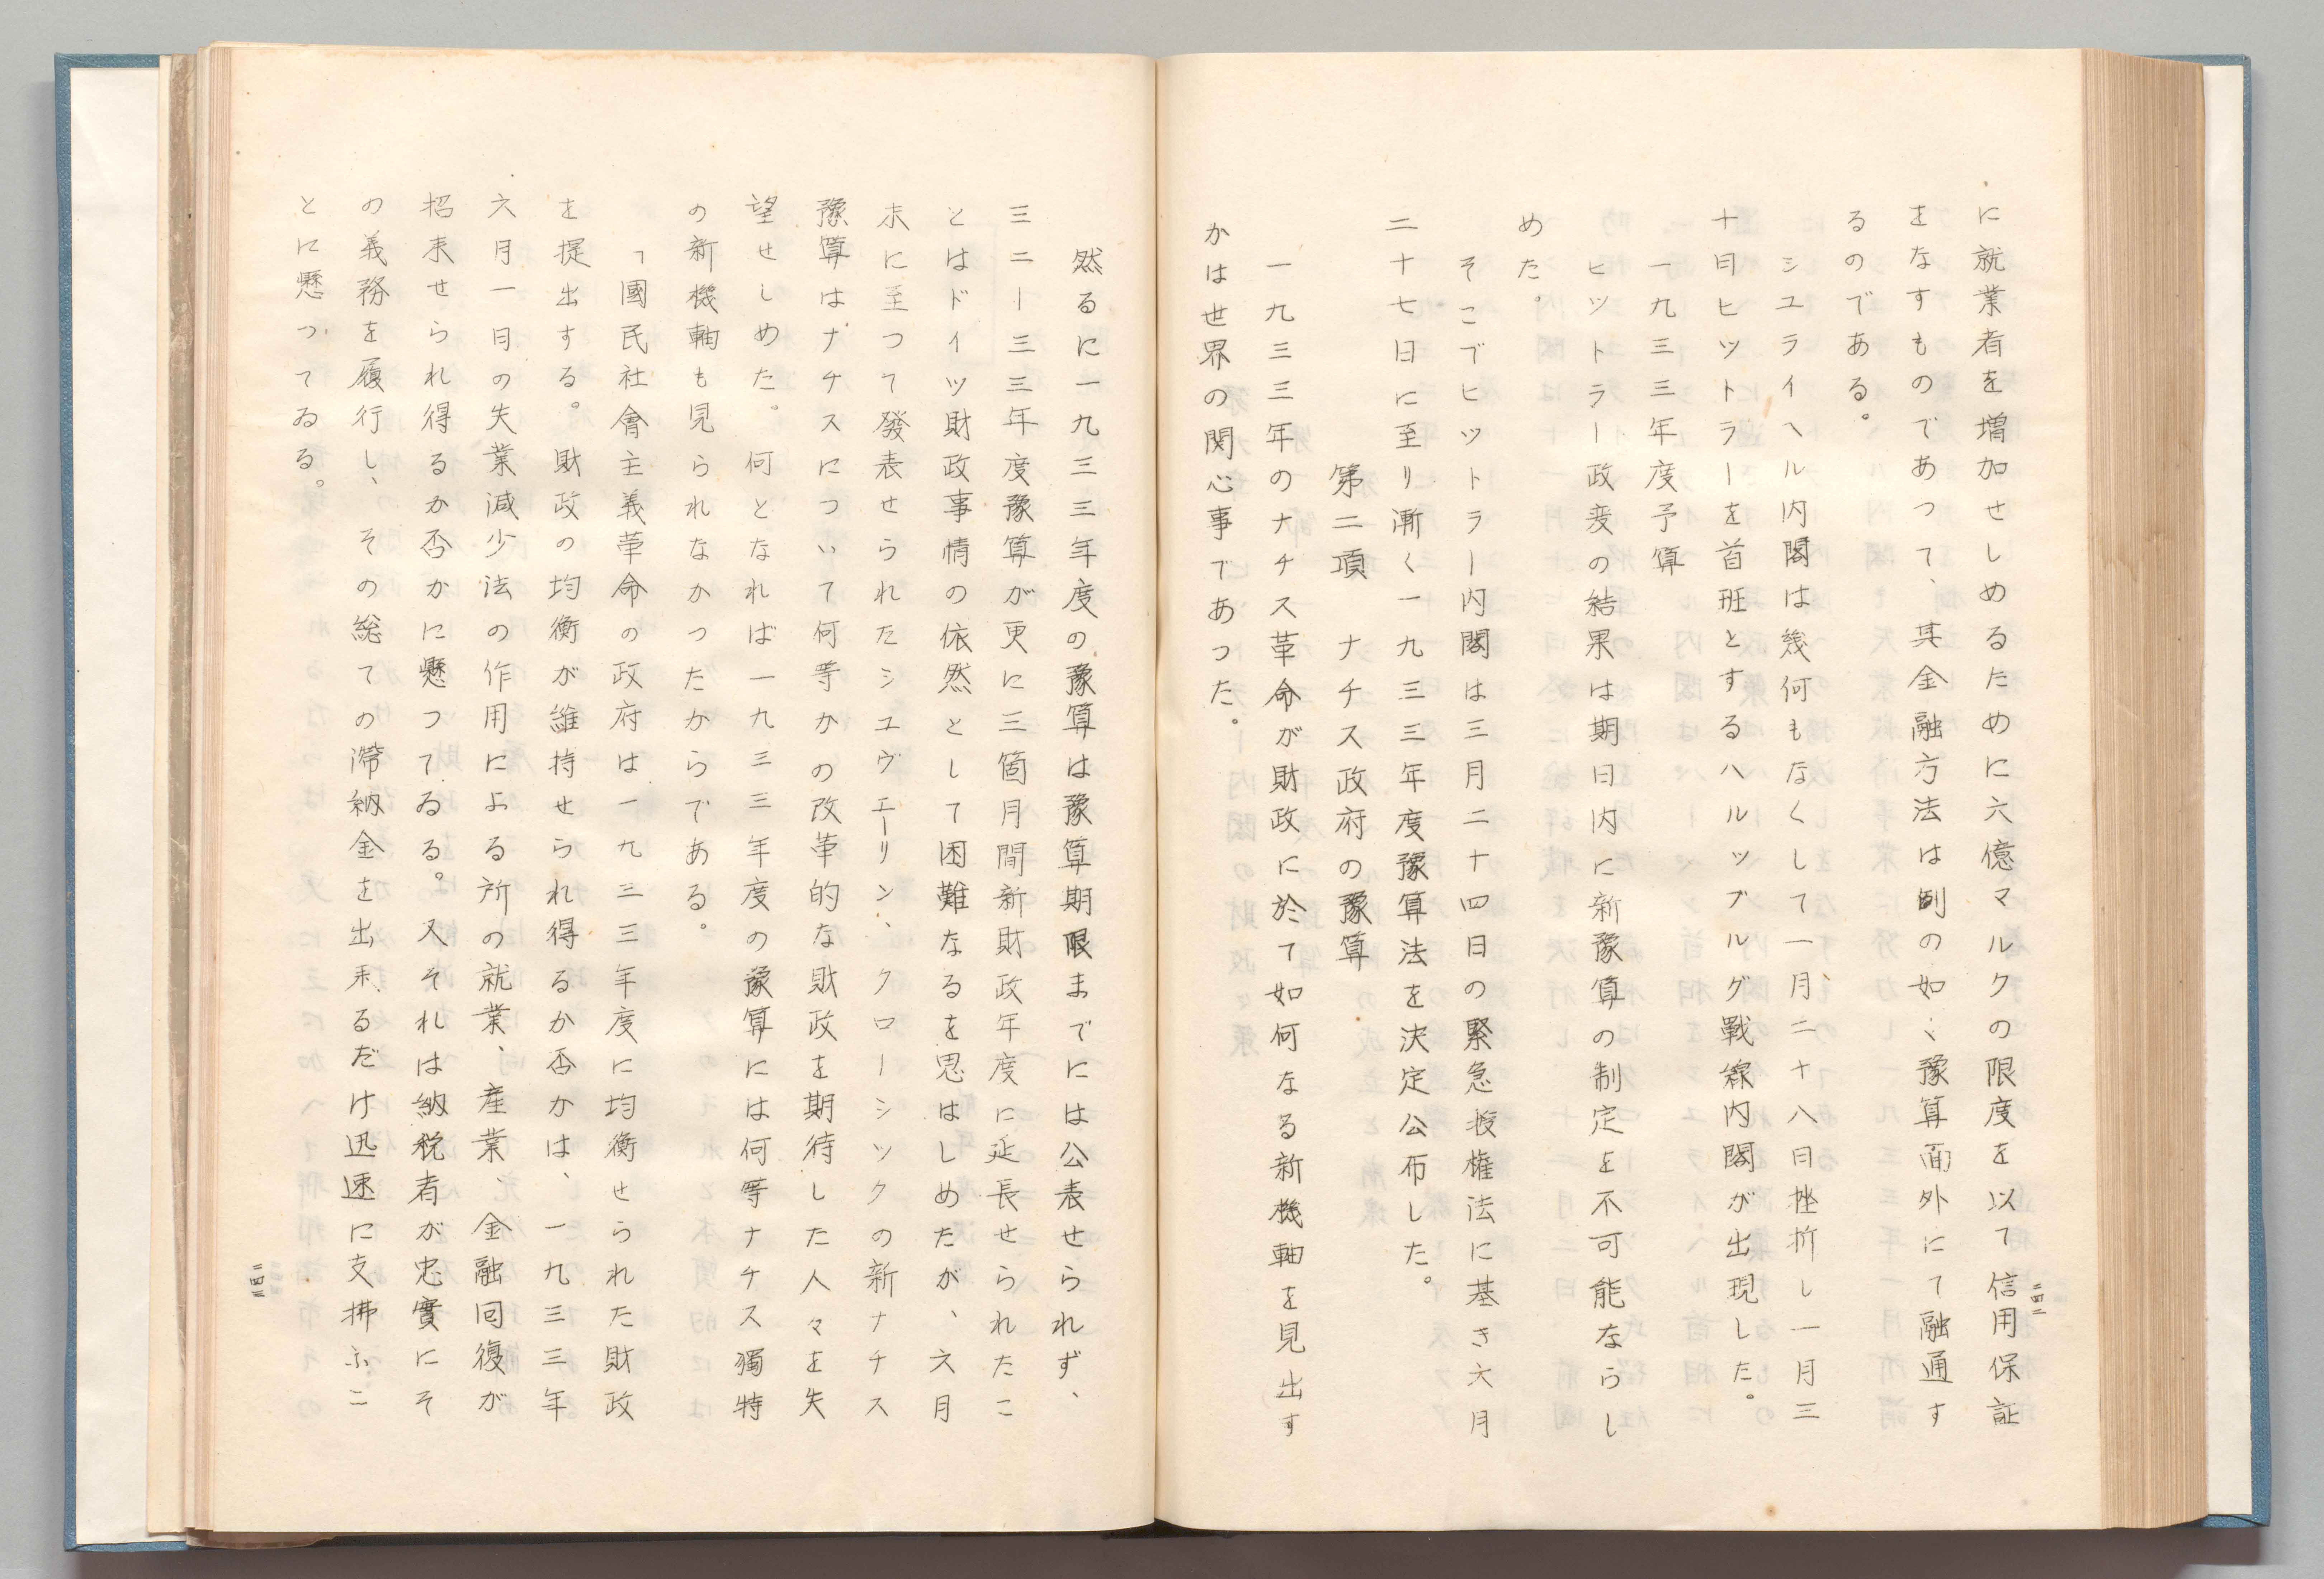 に就業者を増加せしめるために六億マルクの限度を以て信用保証
をなすものであつて、其金融方法は例の如く豫算面外にて融通す
るのである。
シユライヘル内閣は幾何もなくして一月二十八日挫折し一月三
十日ヒツトラーを首班とするハルツブルグ戰線内閣が出現した。
一九三三年度予算
ヒツトラー政変の結果は期日内に新豫算の制定を不可能ならし
めた。
そこでヒツトラー内閣は三月二十四日の緊急授権法に基き六月
二十七日に至り漸く一九三三年度豫算法を決定公布した。
第二項 ナチス政府の豫算
一九三三年のナチス革命が財政に於て如何なる新機軸を見出す
かは世界の関心事であつた。
二四二
然るに一九三三年度の豫算は豫算期限までには公表せられず、
三二ー三三年度豫算が更に三箇月間新財政年度に延長せられたこ
とはドイツ財政事情の依然として困難なるを思はしめたが、六月
末に至つて發表せられたシユヴエーリン、クローシツクの新ナチス
豫算はナチスについて何等かの改革的な財政を期待した人々を失
望せしめた。何となれば一九三三年度の豫算には何等ナチス獨特
の新機軸も見られなかつたからである。
「國民社會主義革命の政府は一九三三年度に均衡せられた財政
を提出する。財政の均衡が維持せられ得るか否かは、一九三三年
六月一日の失業減少法の作用による所の就業、産業、金融回復が
招来せられ得るか否かに懸つてゐる。又それは納税者が忠實にそ
の義務を履行し、その総ての滯納金を出来るだけ迅速に支拂ふこ
とに懸つてゐる。
二四三